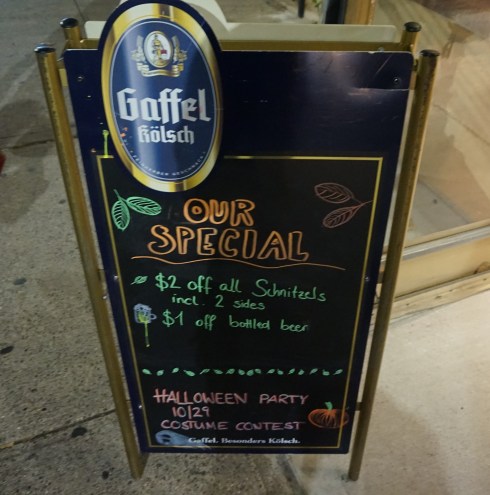 Gaffel
Kölsch
OUR
SPECIAL
$2 off all Schnitzels
incl. 2 sides
$1 off bottled beer
HALLOWEEN PARTY
10/29
COSTUME CONTEST
Gaffel. Besonders Kölsch.